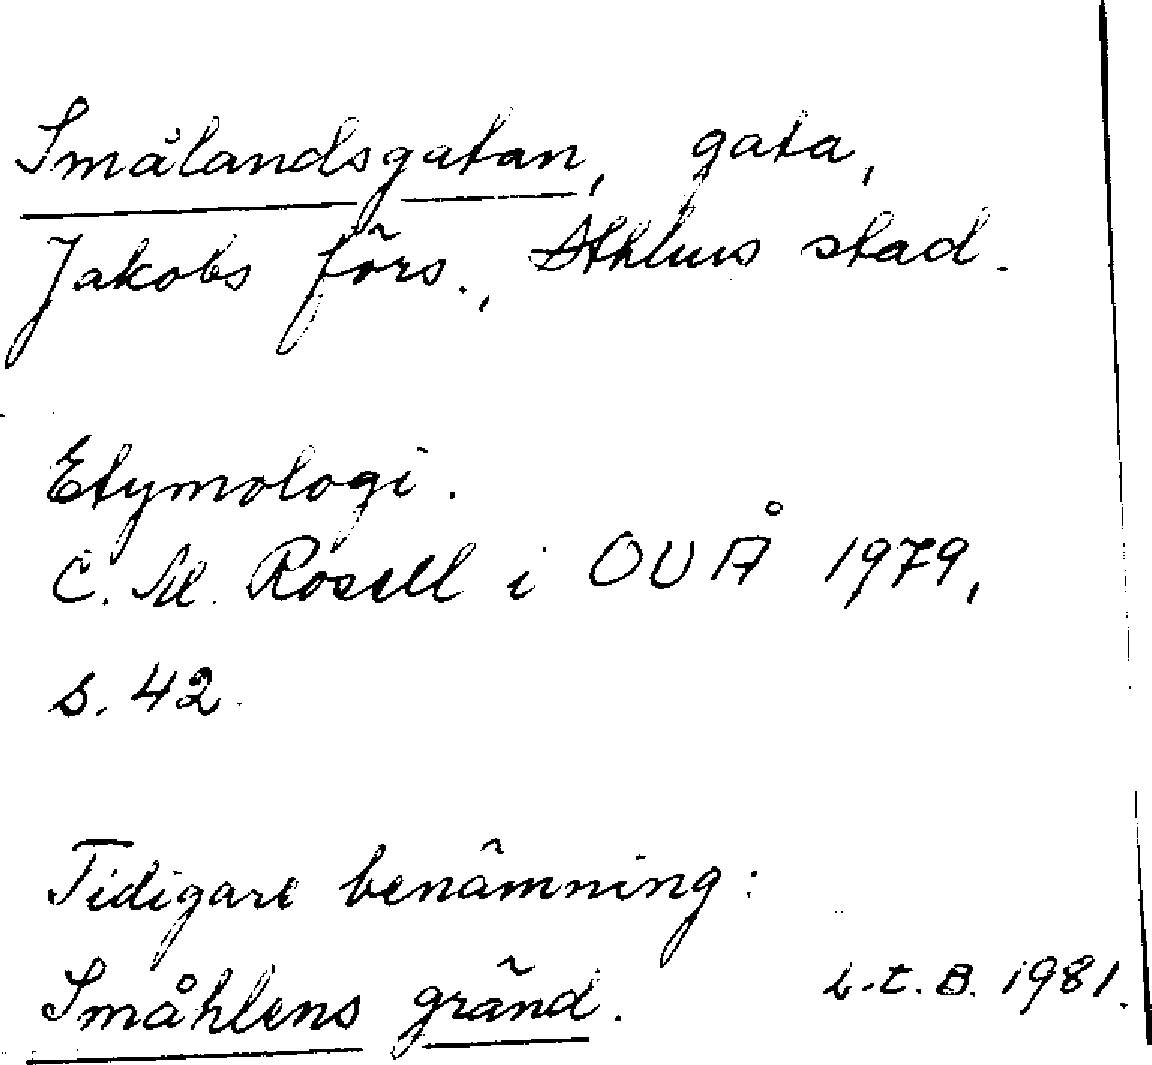 Smålandsgatan, gata,
Jakobs förs., Sthlms stad.
Etymologi.
C. M. Rosell i OUÅ 1979,
s. 42.
Tidigare benämning:
Småhlens gränd.
L.E.B. 1981.